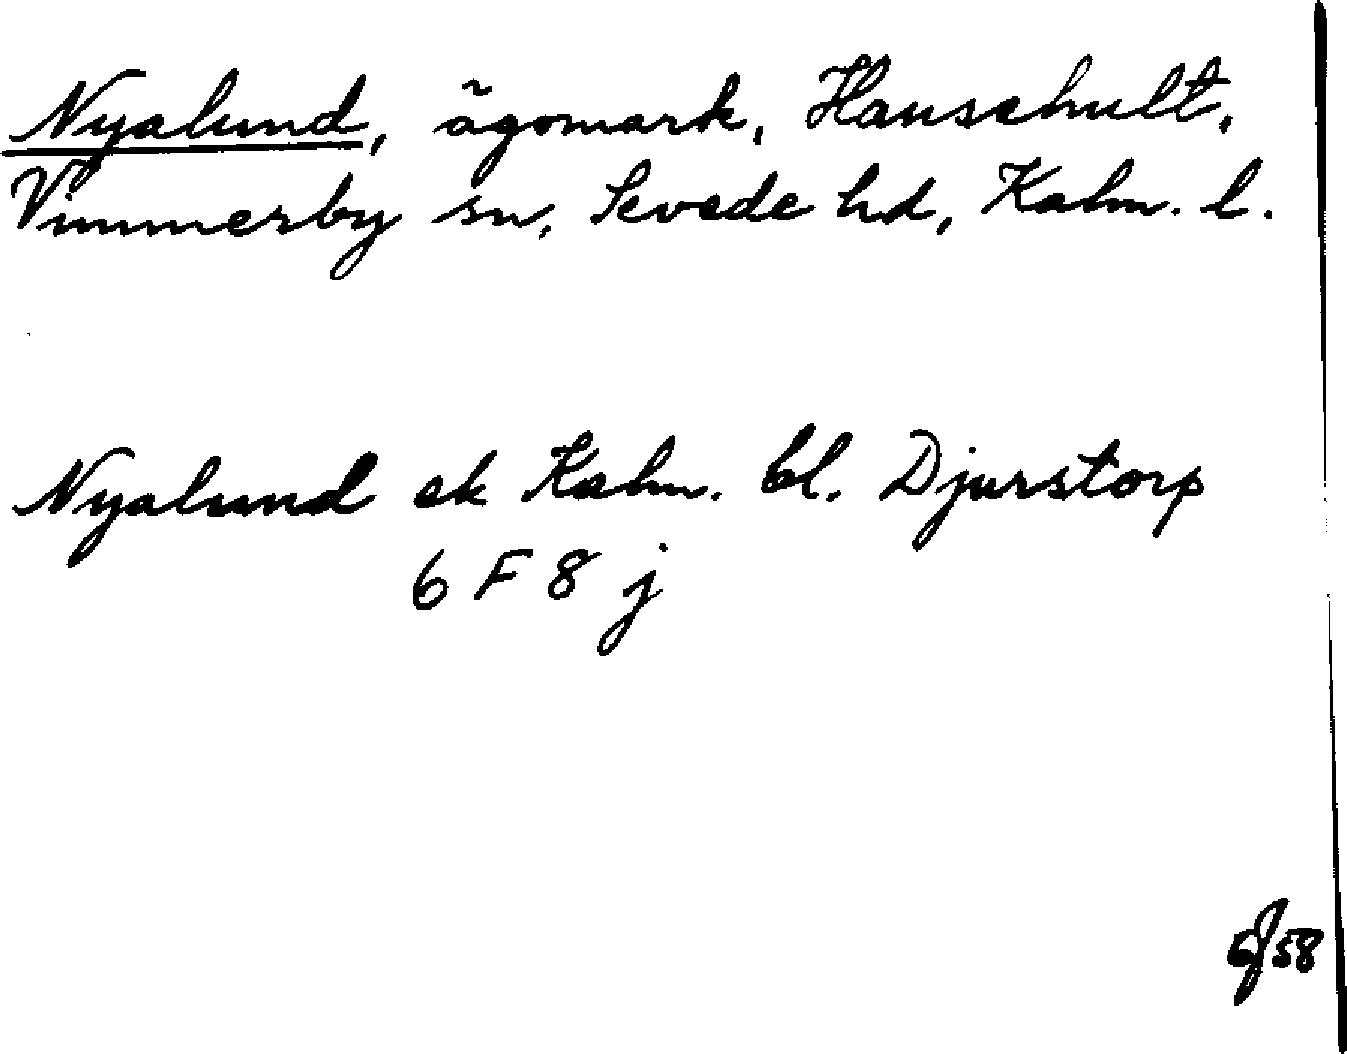 Nyalund, ägomark, Hanschult,
Vimmerby sn, Sevede hd, Kalm. l.
Nyalund ek Kalm. bl. Djurstorp
6 F 8 j